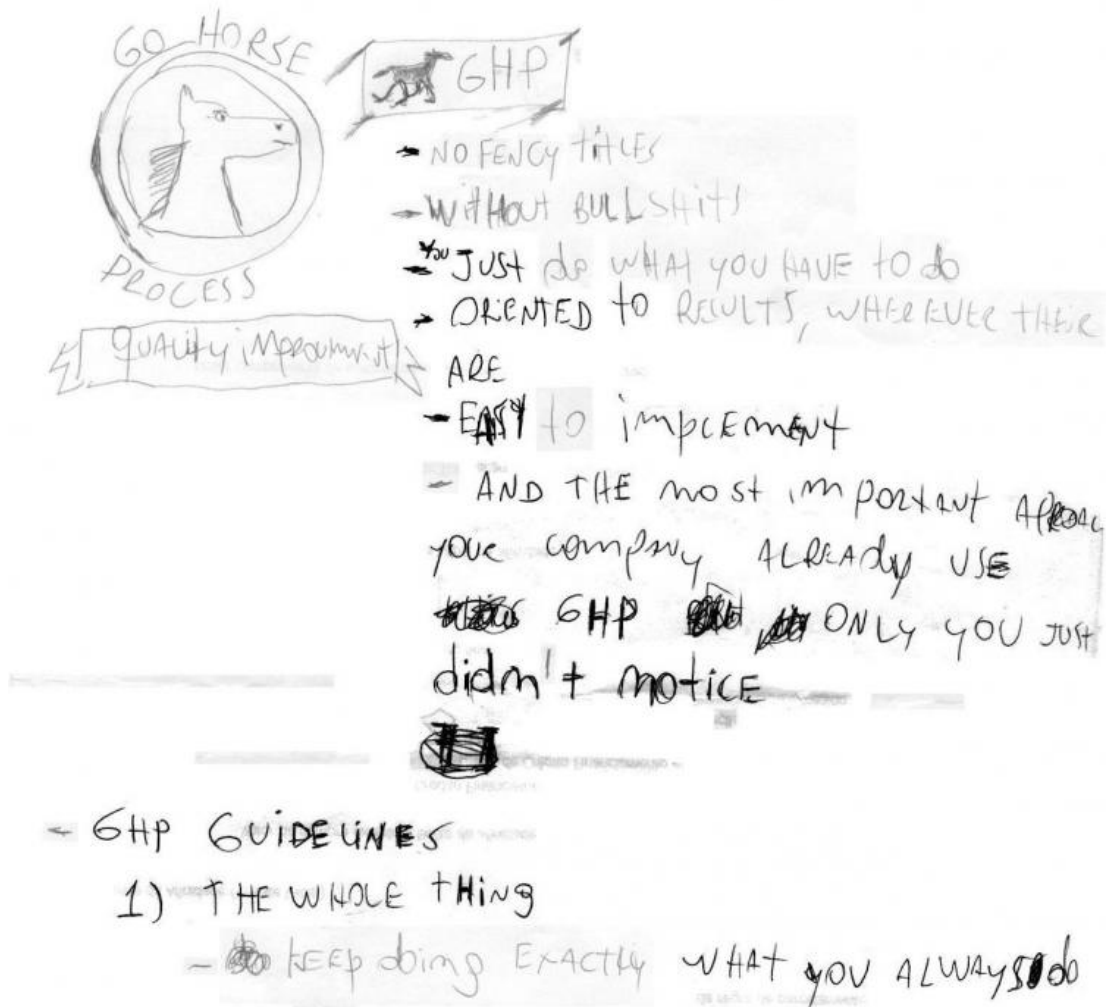 GO HORSE
PROCESS
QUALITY
GHP
- NO FENCY TITLES
- WITHOUT BULLSHITS
- YOU JUST do WHAT YOU HAVE to do
- ORIENTED to RESULTS, WHEREVER THEIR
ARE
- EASY to implement
- AND THE most important
your company ALREADY USE
GHP ONLY YOU JUST
didn't notice
- GHP GUIDELINES
1) THE WHOLE tHing
- KEEP doing EXACTLY WHAT YOU ALWAYS do